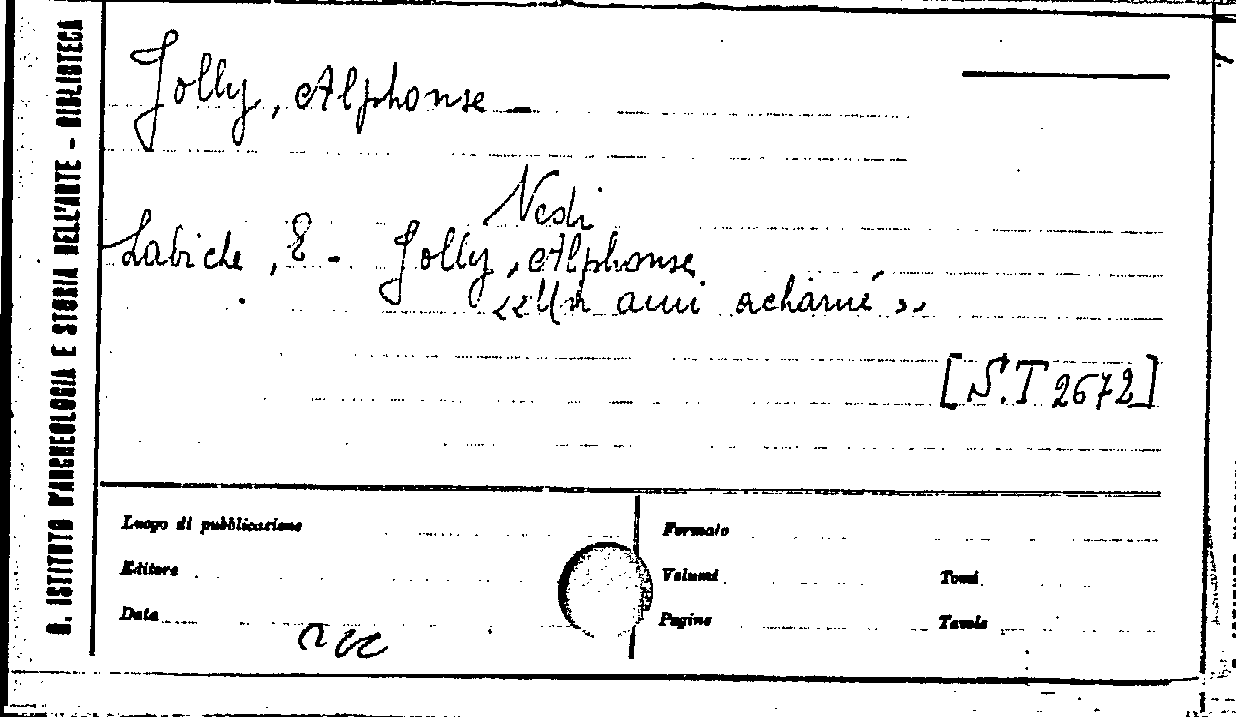 Jolly, Alphonse -
Vedi
Labiche, E - Jolly, Alphonse
«Un ami acharné»
[S.T 2672]
R. ISTITUTO D'ARCHEOLOGIA E STORIA DELL'ARTE - BIBLIOTECA
Luogo di pubblicazione
Editore
Data
Formato
Volumi
Tomi
Pagine
Tavole